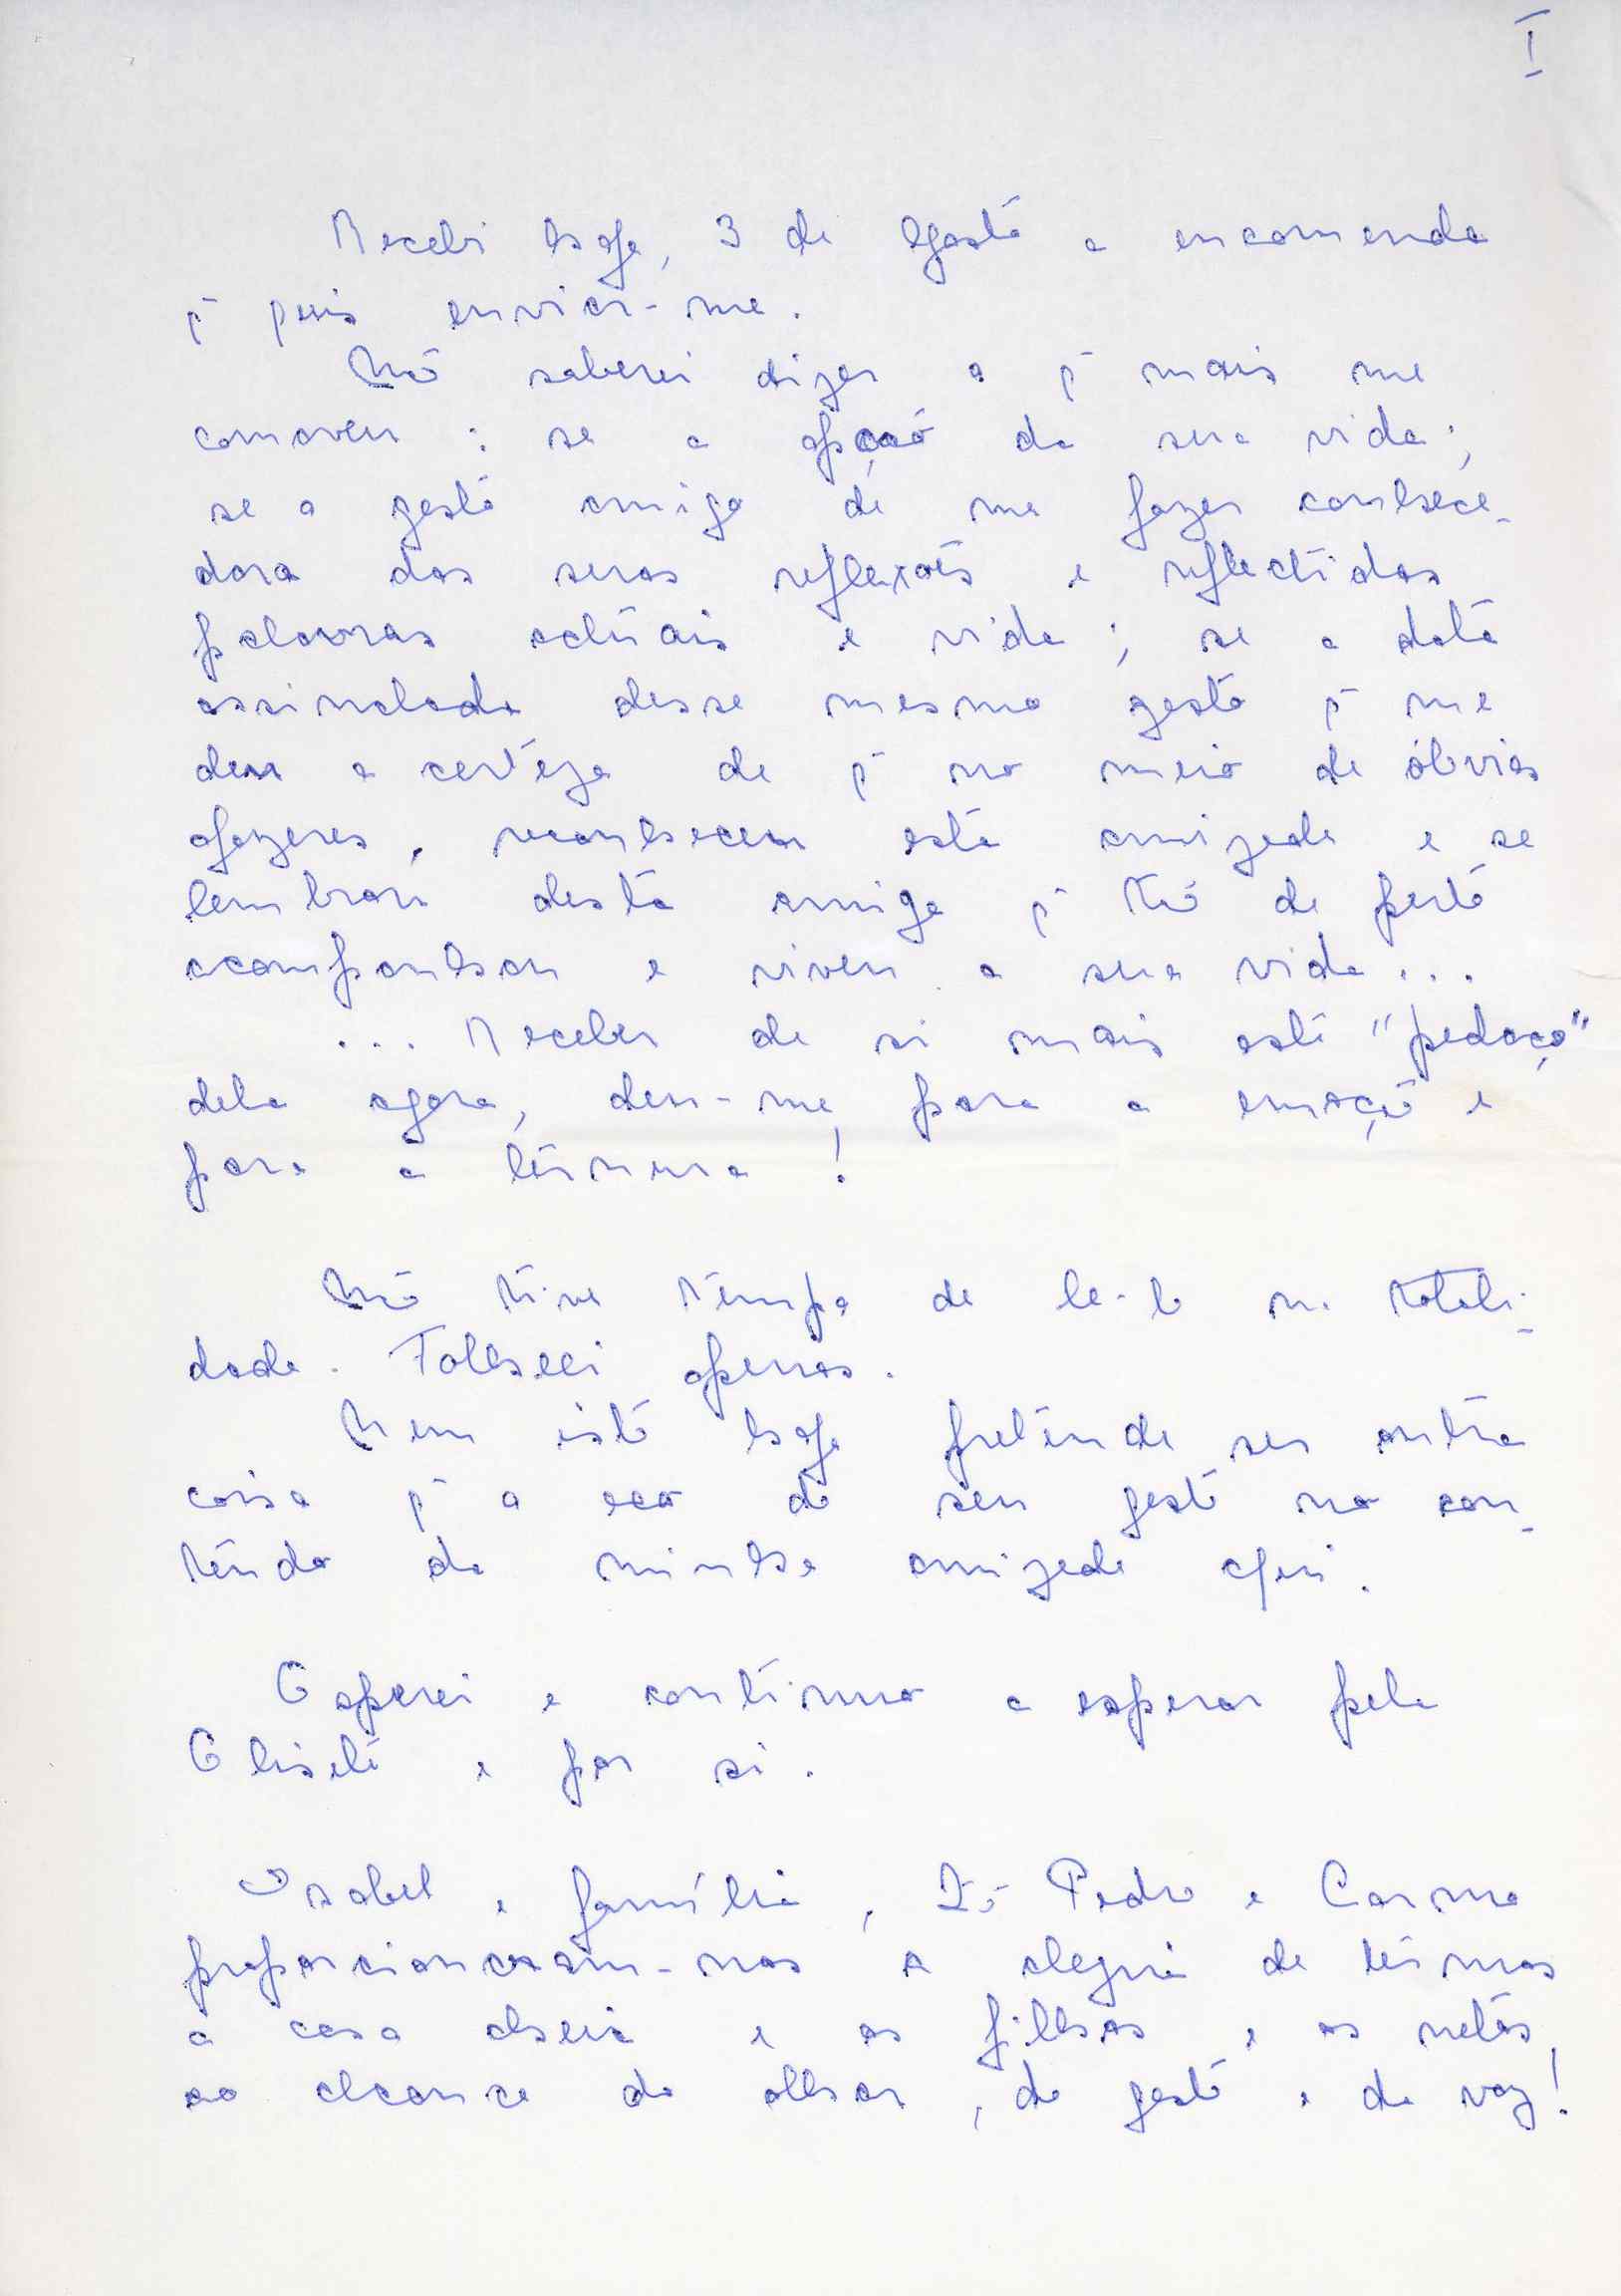 I
Recebi hoje, 3 de Agosto a encomenda
q̃ quis enviar-me.
Não saberei dizer o q̃ mais me
comoveu : se a opção da sua vida ;
se o gesto amigo de me fazer conhece-
dora das suas reflexões e reflectidas
palavras actuais e vida ; se a data
assinalada desse mesmo gesto q̃ me
deu a certeza de q̃ no meio de óbvios
afazeres, reconheceu esta amizade e se
lembrou desta amiga q̃ tão de perto
acompanhou e viveu a sua vida...
... Receber de si mais este "pedaço"
dela agora, deu-me para a emoção e
para a ternura !
Não tive tempo de le-lo na totali-
dade. Folheei apenas.
Nem isto hoje pretende ser outra
coisa q̃ o eco do seu gesto no con-
teúdo da minha amizade
Esperei e continuo a esperar pela
Elisete e por si.
Isabel e família, Zé Pedro e Carmo
proporcionaram-nos a alegria de termos
a casa cheia e os filhos e os netos,
ao alcance do olhar, do gesto e da voz!